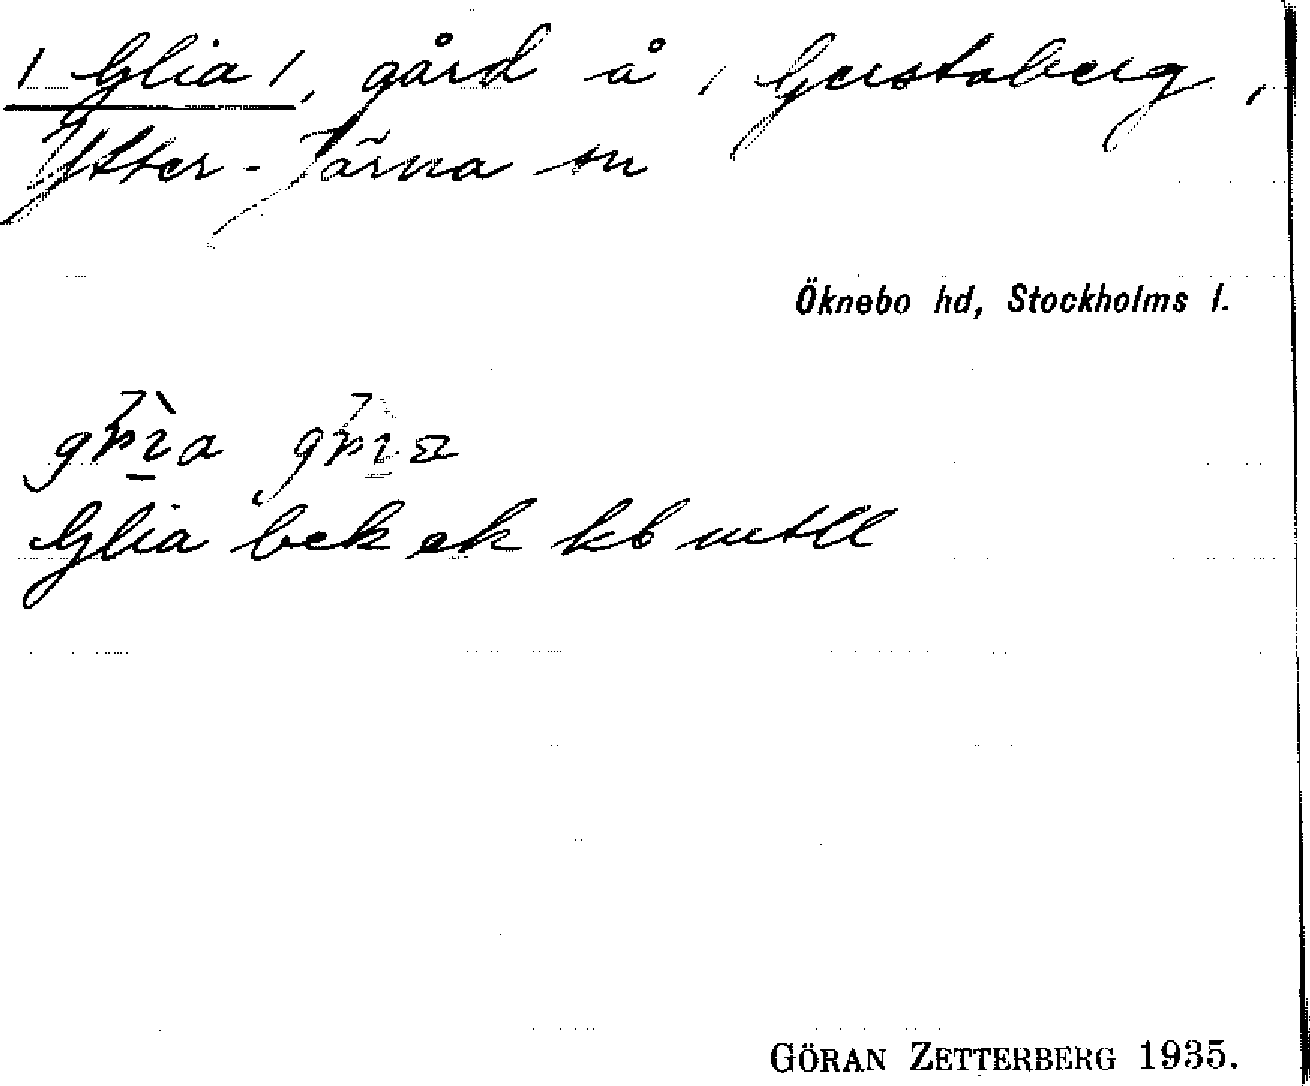 / Glia /, gård å / Gerstaberg,
Ytter-Järna sn
Öknebo hd, Stockholms l.
Glia bek ek kb mtll
GÖRAN ZETTERBERG 1935.